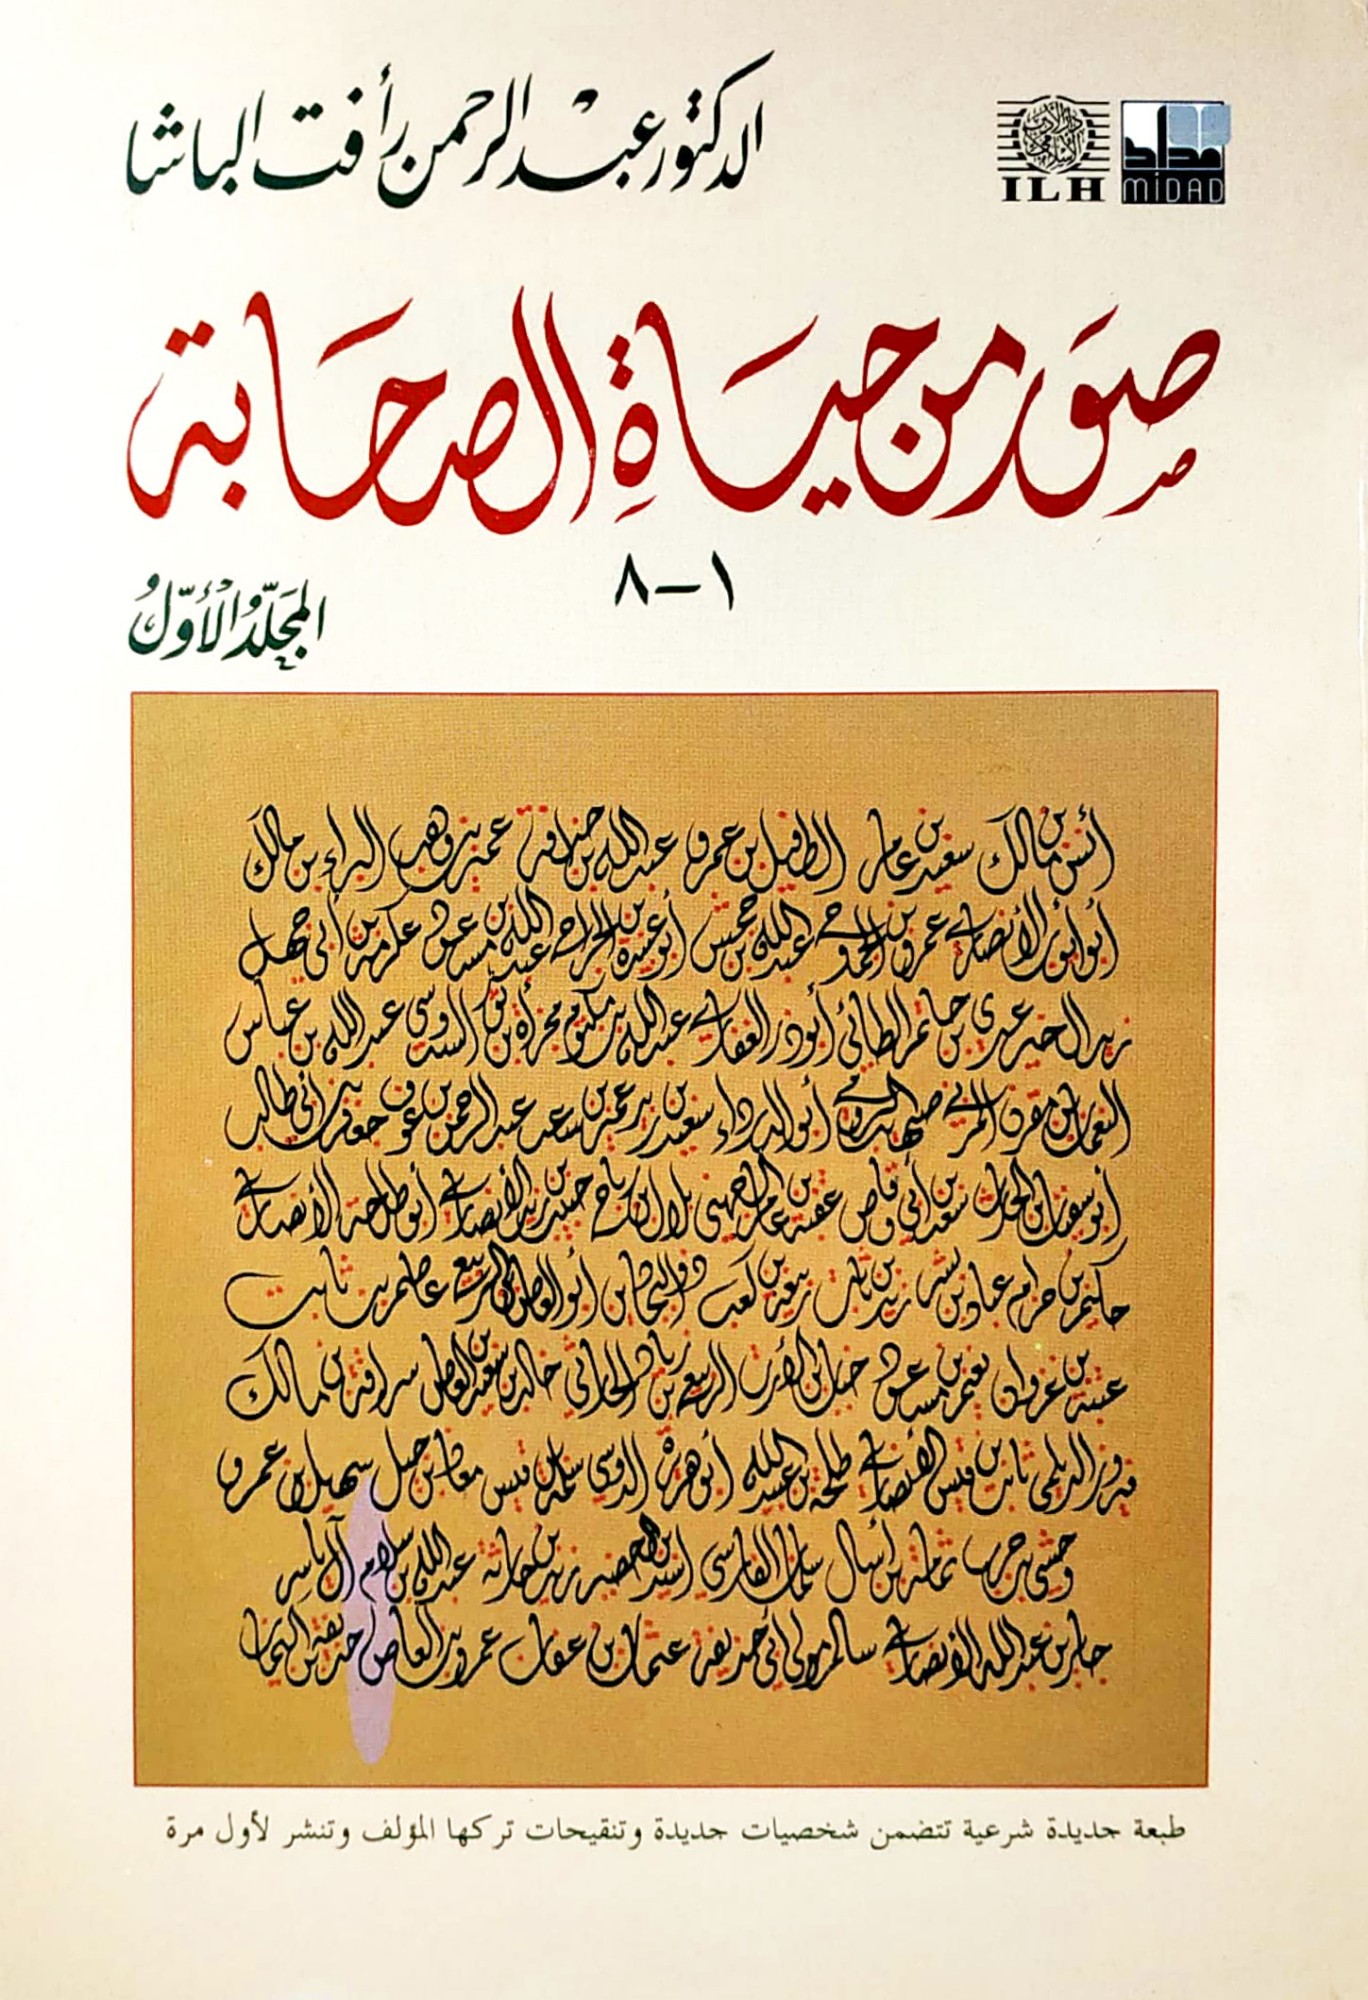 الدكتور عبد الرحمن رأفت الباشا
دار الأدب الإسلامي
ILH
مداد
MIDAD
صور من حياة الصحابة
١-٨
المجلّدُ الأوّلُ
أنس بن مالك سعيد بن عامر الطفيل بن عمرو عبد الله بن حذافة عمير بن وهب البراء بن مالك
أبو أيوب الأنصاري عمرو بن الجموح عبد الله بن جحش أبو عبيدة بن الجراح عبد الله بن مسعود عكرمة بن أبي جهل
زيد الخير عدي بن حاتم الطائي أبو ذر الغفاري عبد الله بن مكتوم مجزأة بن ثور السدوسي عبد الله بن عباس
النعمان بن مقرن المزني صهيب الرومي أبو الدرداء سعيد بن زيد عمير بن سعد عبد الرحمن بن عوف جعفر بن أبي طالب
أبو سفيان بن الحارث سعد بن أبي وقاص عقبة بن عامر الجهني بلال بن رباح حبيب بن زيد الأنصاري أبو طلحة الأنصاري
حكيم بن حزام عباد بن بشر زيد بن ثابت ربيعة بن كعب ذو البجادين أبو العاص بن الربيع عاصم بن ثابت
عتبة بن غزوان نعيم بن مسعود خباب بن الأرت الربيع بن زياد الحارثي خالد بن سعيد بن العاص سراقة بن مالك
فيروز الديلمي ثابت بن قيس الأنصاري طلحة بن عبيد الله أبو هريرة الدوسي سلمة بن قيس معاذ بن جبل سهيل بن عمرو
وحشي بن حرب ثمامة بن أثال سلمان الفارسي أسيد بن الحضير زيد بن حارثة عبد الله بن سلام آل ياسر
جابر بن عبد الله الأنصاري سالم مولى أبي حذيفة عثمان بن عفان عمرو بن العاص حذيفة بن اليمان
طبعة جديدة شرعية تتضمن شخصيات جديدة وتنقيحات تركها المؤلف وتنشر لأول مرة